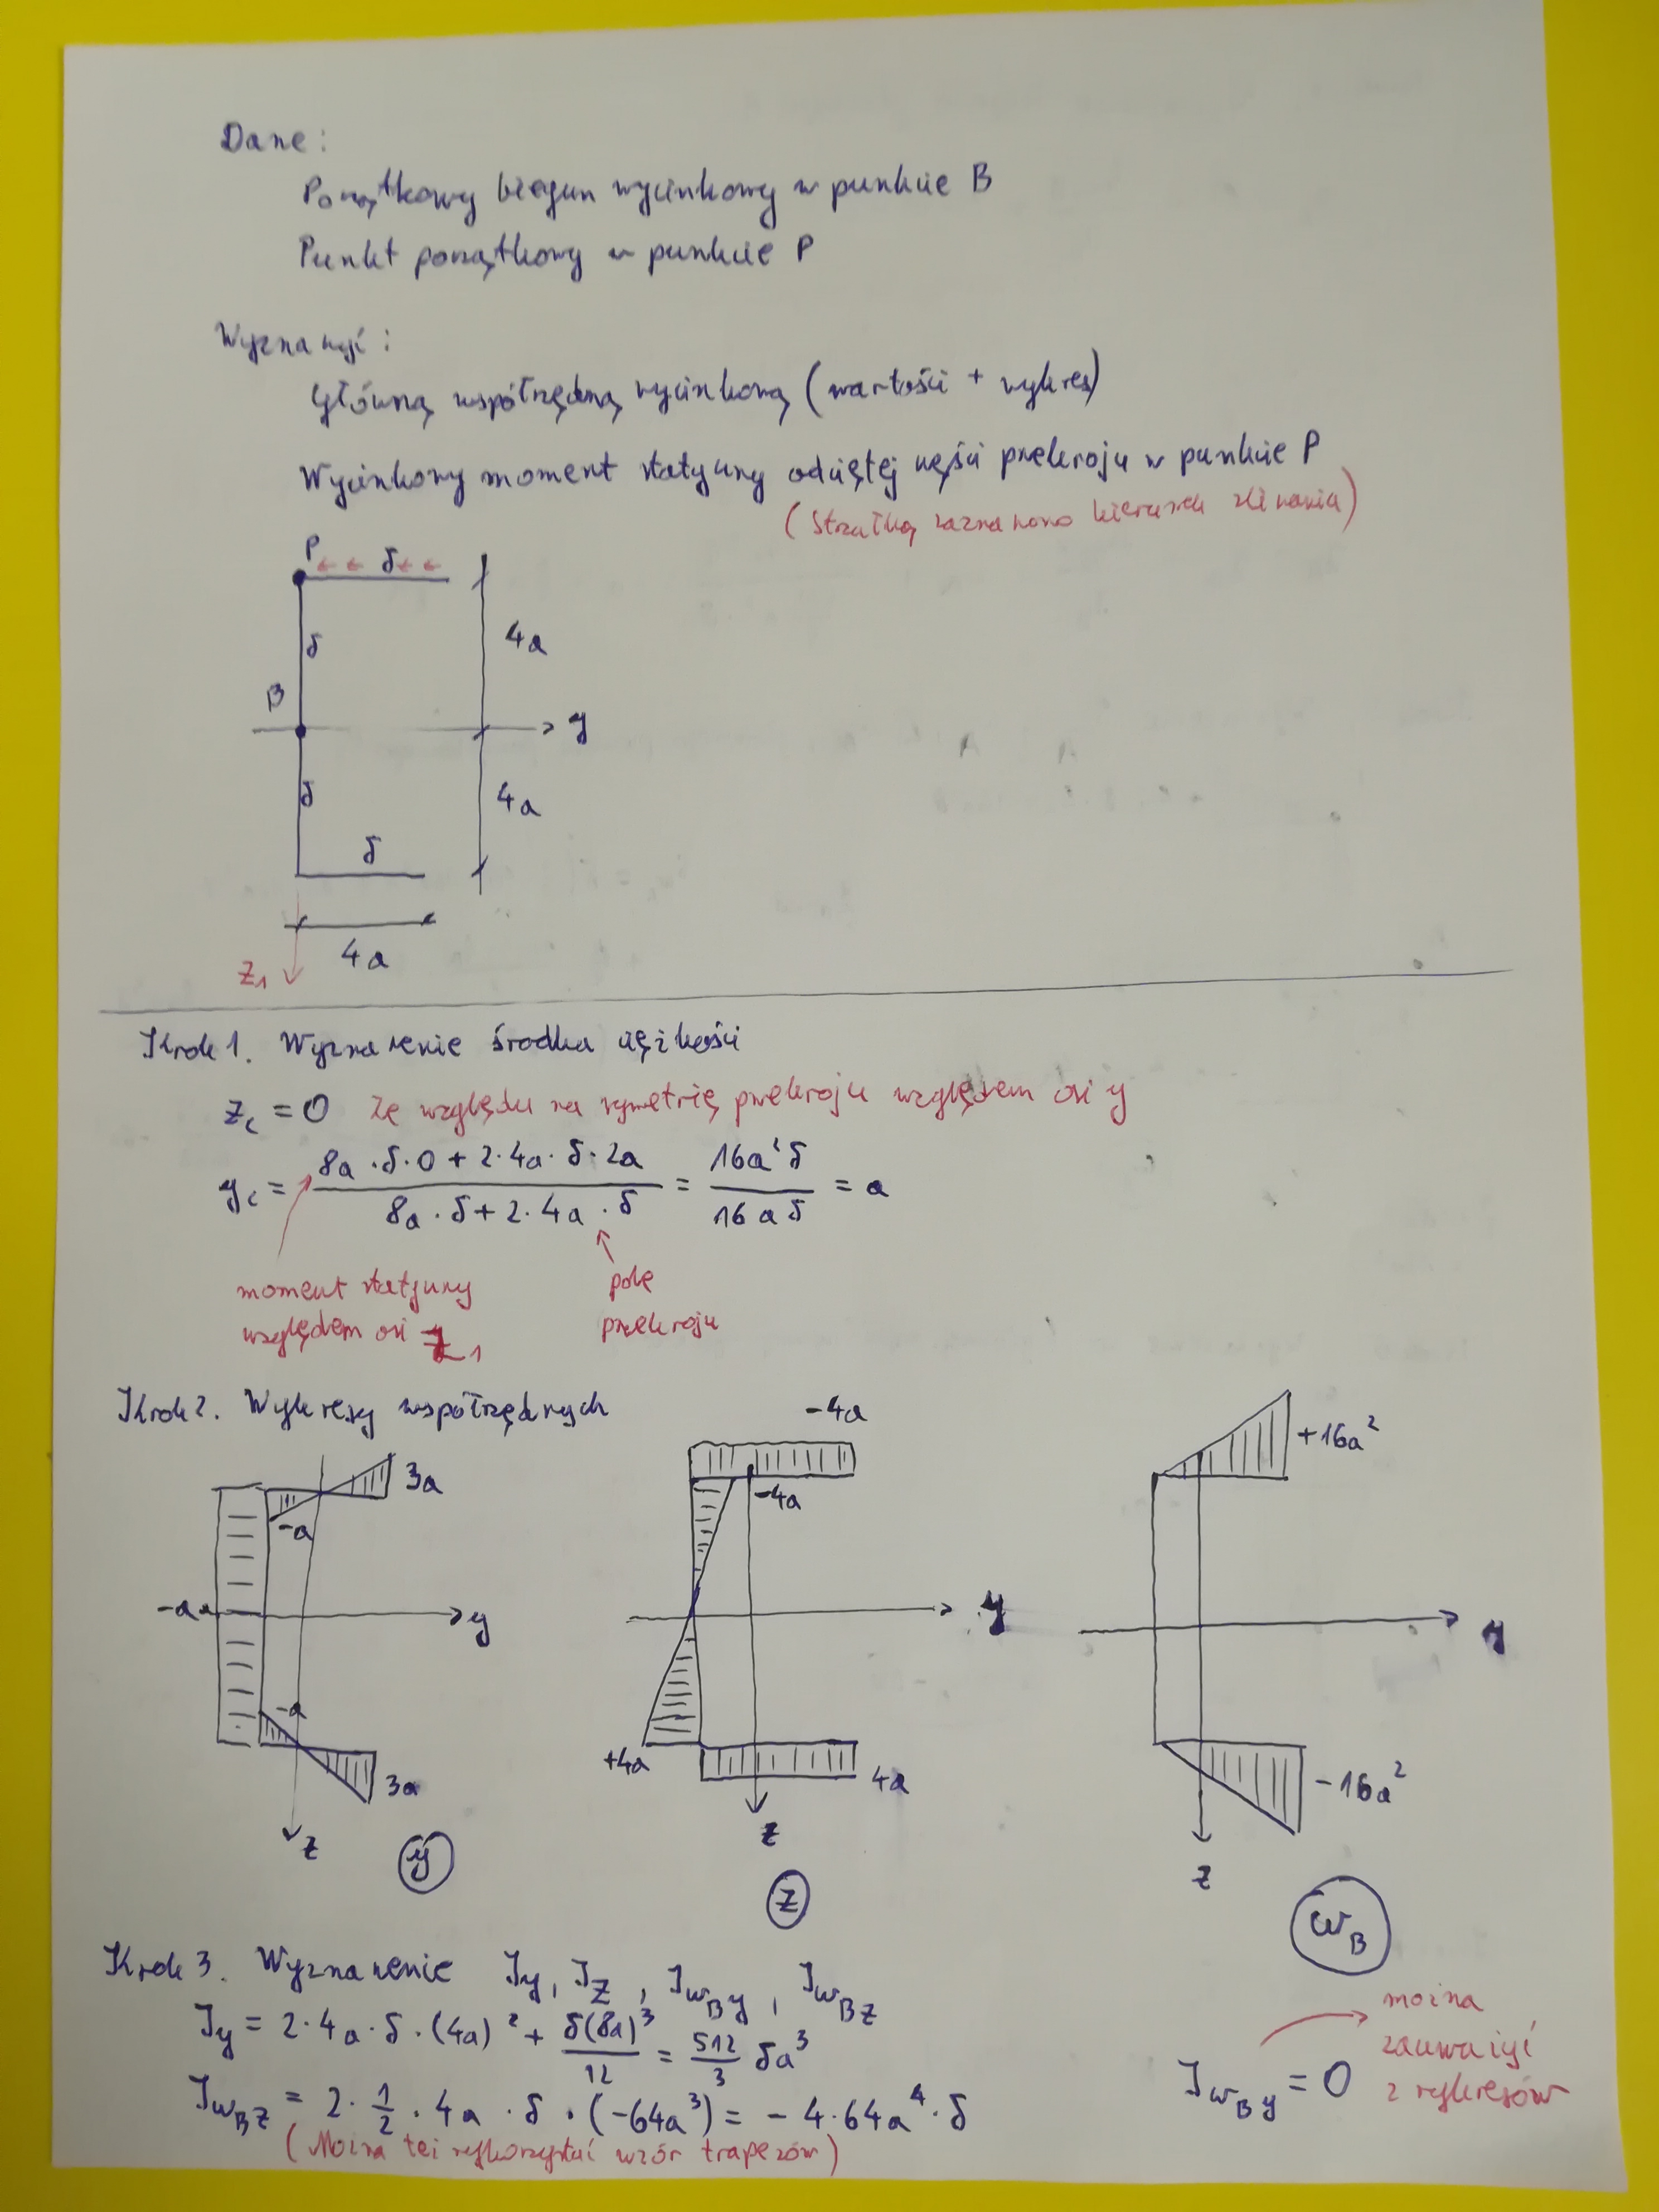 Dane:
Początkowy biegun wycinkowy w punkcie B
Punkt początkowy w punkcie P
Wyznaczyć:
Główną współrzędną wycinkową (wartości + wykres)
Wycinkowy moment statyczny odciętej części przekroju w punkcie P
(Strzałką zaznaczono kierunek ścinania)
P ← ← δ ← ←
δ
4a
B
y
δ
4a
δ
4a
z₁
Krok 1. Wyznaczenie środka ciężkości
z_c = 0 ze względu na symetrię przekroju względem osi y
y_c = (8a·δ·0 + 2·4a·δ·2a) / (8a·δ + 2·4a·δ) = 16a²δ / 16aδ = a
moment statyczny względem osi z₁
pole przekroju
Krok 2. Wykresy współrzędnych
3a
-a
-a
y
-a
3a
z
y
-4a
-4a
y
+4a
4a
z
z
+16a²
y
-16a²
z
ω_B
Krok 3. Wyznaczenie J_y, J_z, J_ωBy, J_ωBz
J_y = 2·4a·δ·(4a)² + δ(8a)³/12 = 512/3 δa³
J_ωBz = 2·1/2·4a·δ·(-64a³) = -4·64a⁴·δ
(Można też wykorzystać wzór trapezów)
J_ωBy = 0
można zauważyć z wykresów